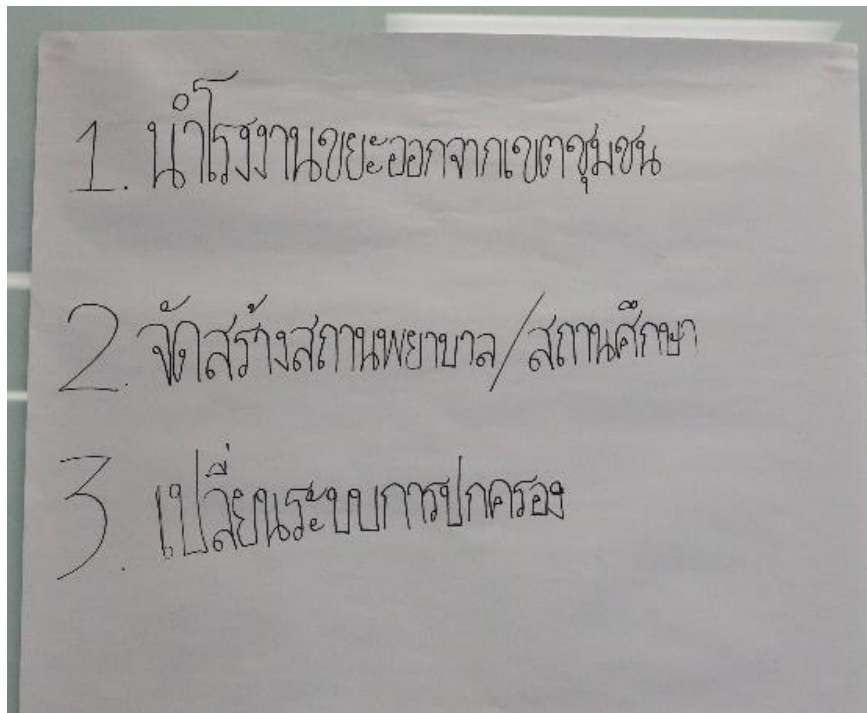 1. นำโรงงานขยะออกจากเขตชุมชน
2. จัดสร้างสถานพยาบาล/สถานศึกษา
3. เปลี่ยนระบบการปกครอง